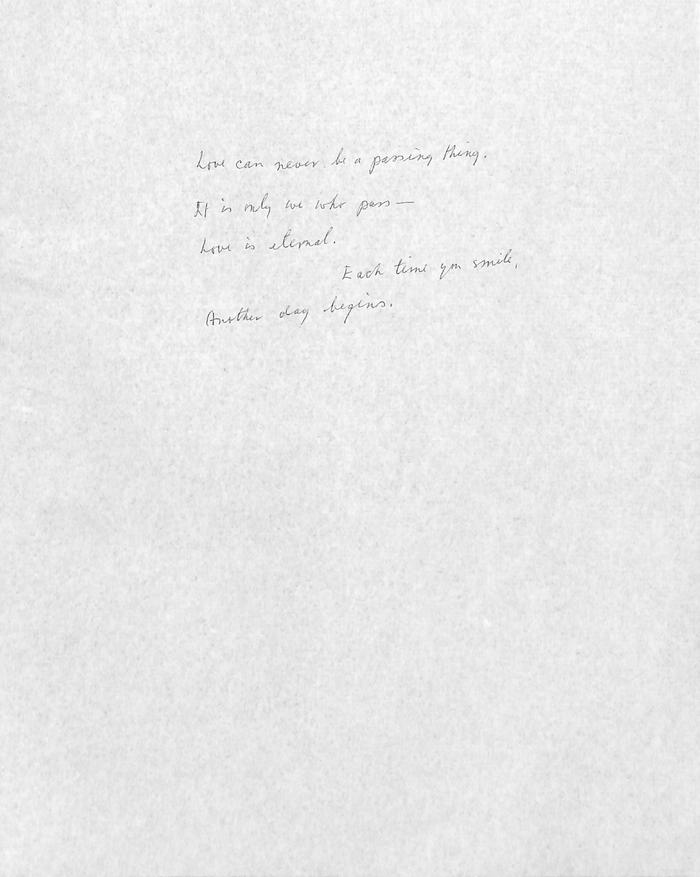 Love can never be a passing thing.
It is only we who pass —
Love is eternal.
Each time you smile,
Another day begins.